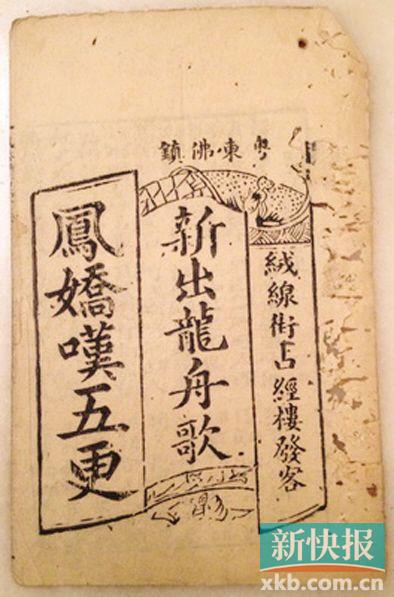 粤東佛鎮
絨線街占經樓發客
新出龍舟歌
鳳嬌嘆五更
新快报
xkb.com.cn